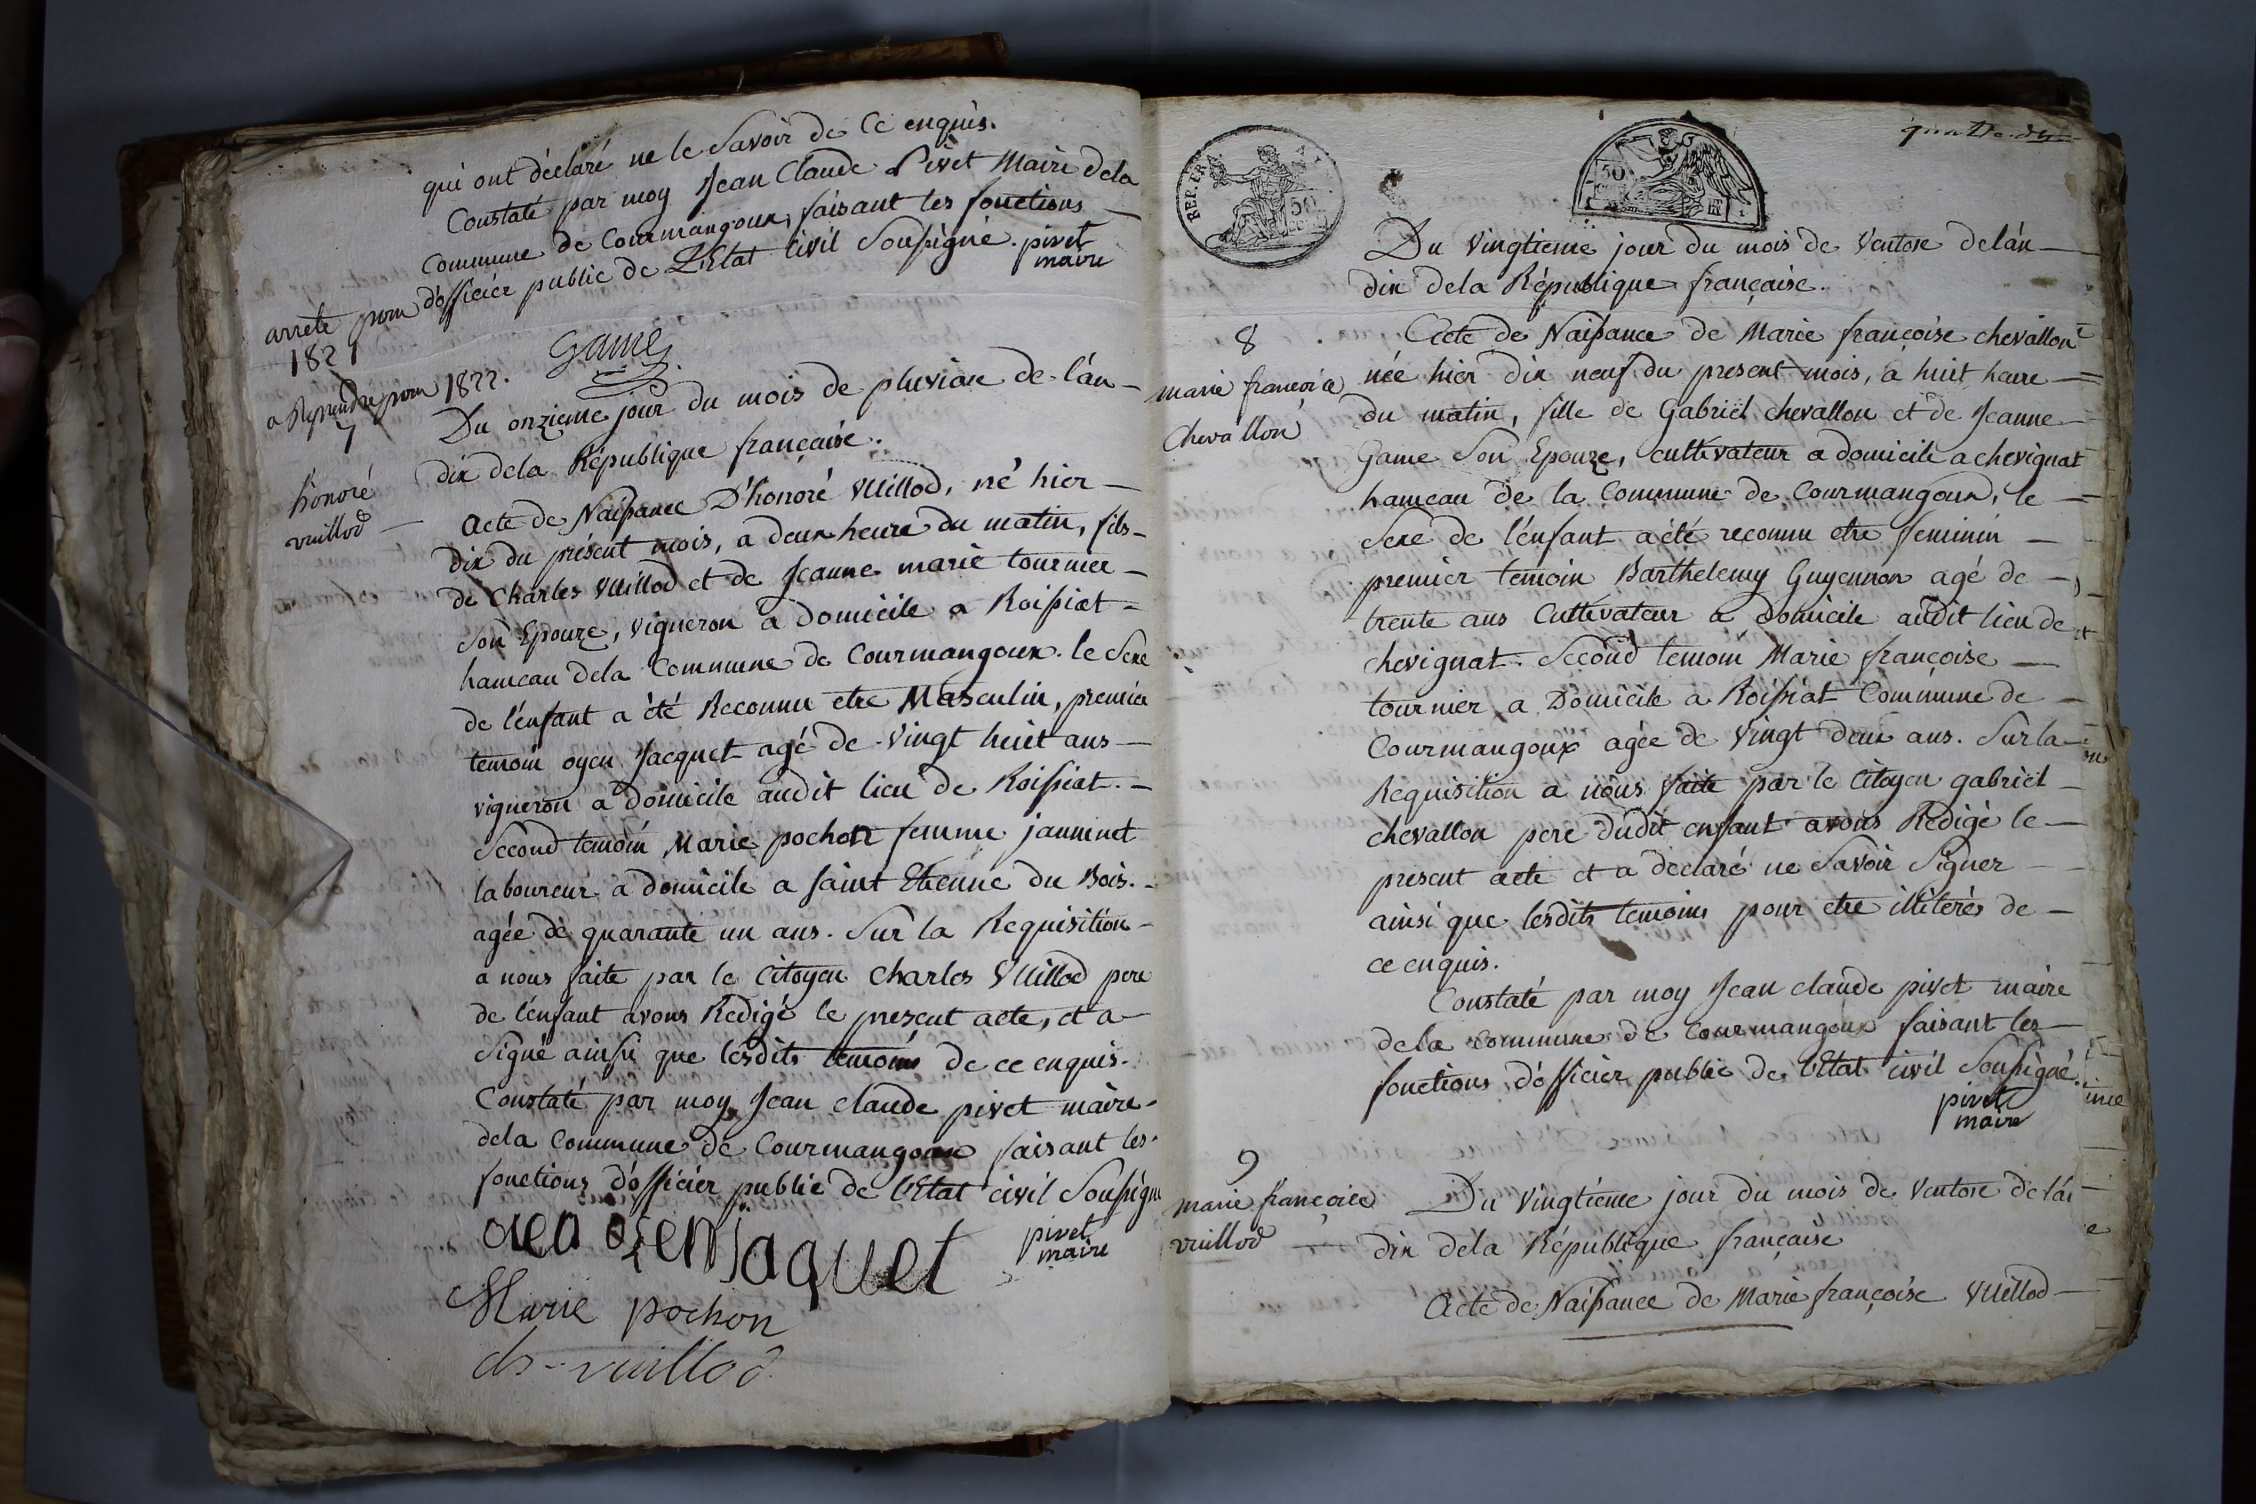 qui ont déclaré ne le Savoir de Ce enquis.
Constaté par moy Jean Claude Pivet Maire dela
Commune de Courmangoux, faisant les fonctions
d'officier public de L'Etat civil Soussigné. pivet
maire
arrête pour
1821
Game
a Reprendre pour 1822.
7
Du onzieme jour du mois de pluviose de l'an
dix dela République française.
honoré
vuillod
Acte de Naissance D'honoré Vuillod, né hier
dix du présent mois, a deux heure du matin, fils
de Charles Vuillod et de Jeanne marie tournier
Son Epouze, vigneron a Domicile a Roissiat
hameau dela Commune de Courmangoux. le Sexe
de l'enfant a été Reconnu etre Masculin, premier
temoin oyen Jacquet agé de Vingt huit ans
vigneron a domicile audit lieu de Roissiat.
Second temoin Marie pochon femme janinet
laboureur a domicile a saint Etienne du Bois.
agée de quarante un ans. Sur la Requisition
a nous faite par le Citoyen Charles Vuillod pere
de l'enfant avons Redigé le present acte, et a
Signé ainsi que lesdits temoins de ce enquis.
Constaté par moy Jean claude pivet maire
dela Commune de Courmangoux faisant les
fonctions d'officier public de l'Etat civil Soussigné
pivet
maire
jaquet
Marie pochon
ch vuillod
REP. FRA
50
50
Du Vingtieme jour du mois de Ventose de l'an
dix dela République française.
8
marie francoise
Chevallon
Acte de Naissance de Marie françoise chevallon
née hier dix neuf du present mois, a huit heure
du matin, fille de Gabriel chevallon et de Jeanne
Game Son Epouze, cultivateur a domicile a chevignat
hameau de la Commune de Courmangoux, le
Sexe de l'enfant a été reconnu etre feminin
premier temoin Barthelemy Guyennon agé de
trente ans Cultivateur a domicile audit lieu de
chevignat. Second temoin Marie françoise
tournier a Domicile a Roissiat Commune de
Courmangoux agée de Vingt deux ans. Sur la
Requisition a nous faite par le Citoyen gabriel
chevallon pere dudit enfant avons Redigé le
present acte et a declaré ne Savoir Signer
ainsi que lesdits temoins pour etre illiterés de
ce enquis.
Constaté par moy Jean claude pivet maire
dela commune de Courmangoux faisant les
fonctions d'officier public de l'Etat civil Soussigné.
pivet
maire
9
marie francoise
vuillod
Du Vingtieme jour du mois de Ventose de l'an
dix dela République française
Acte de Naissance de Marie françoise Vuillod